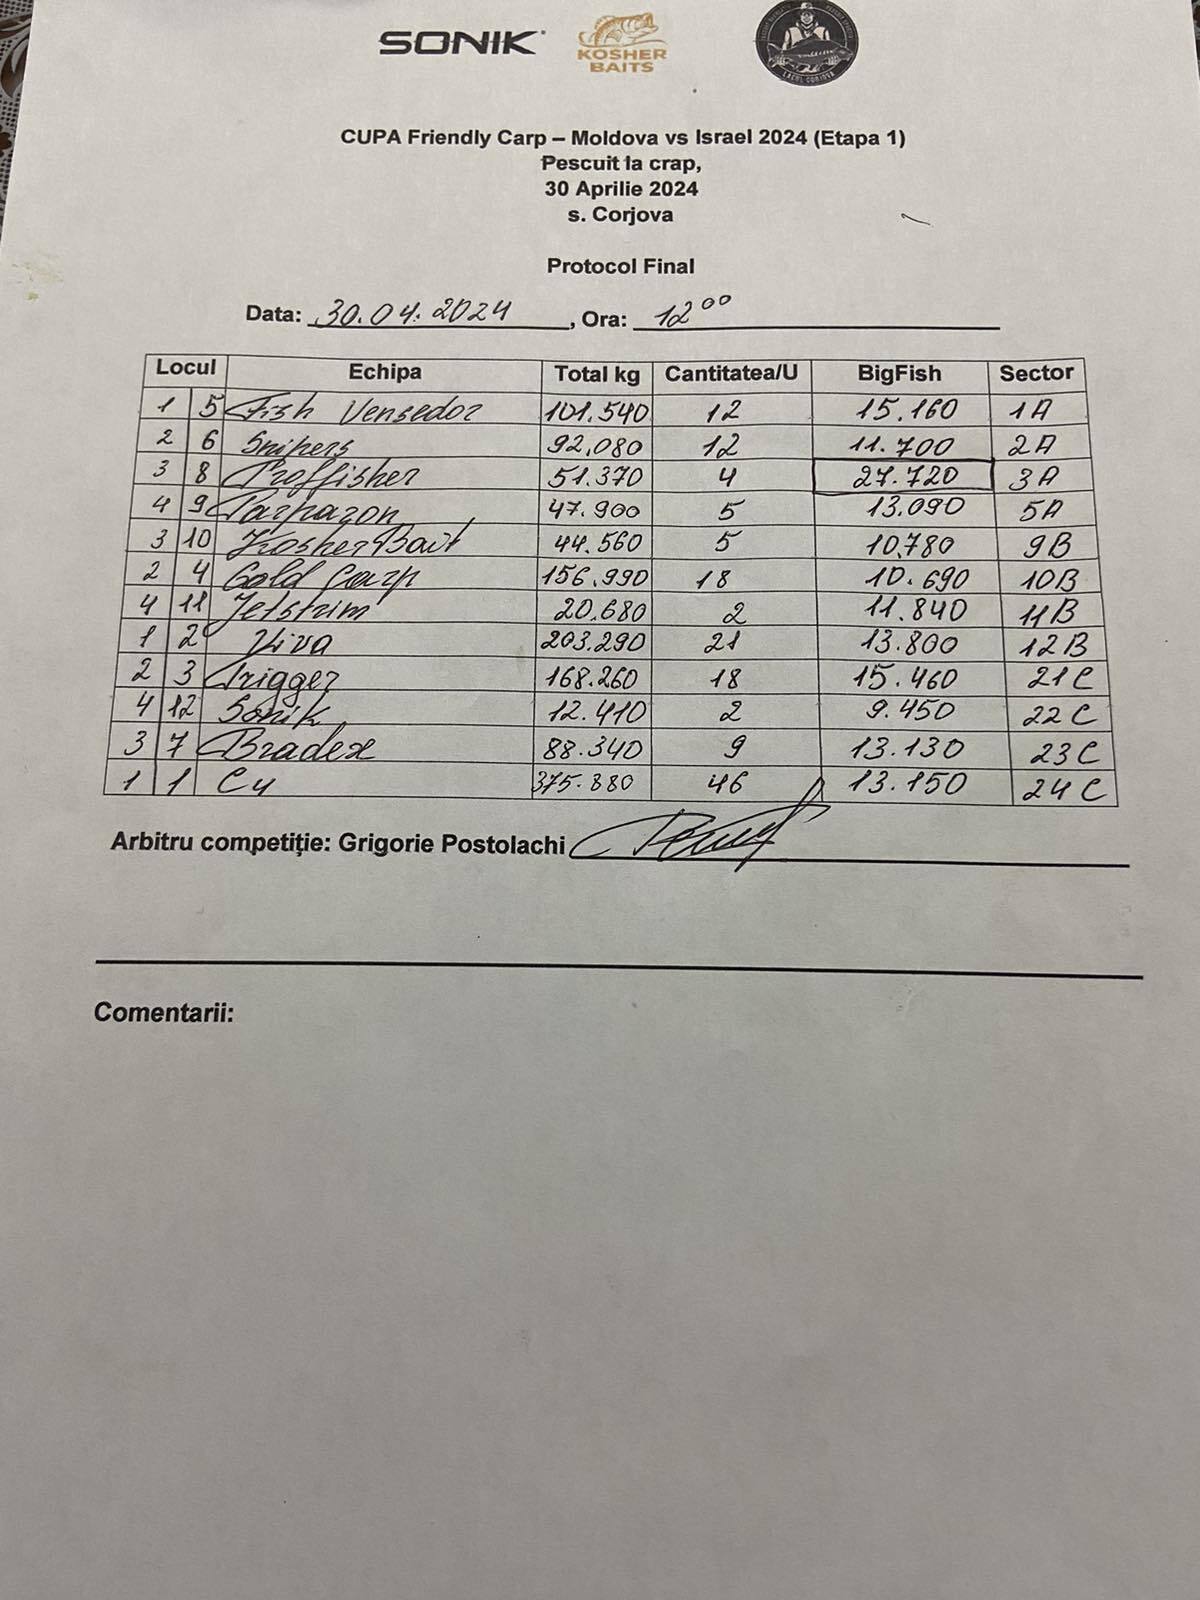 SONIK
KOSHER
BAITS
LACUL CORJOVA
CUPA Friendly Carp – Moldova vs Israel 2024 (Etapa 1)
Pescuit la crap,
30 Aprilie 2024
s. Corjova
Protocol Final
Data: 30.04.2024, Ora: 12⁰⁰
Locul Echipa Total kg Cantitatea/U BigFish Sector
1 5 Fish Vensedor 101.540 12 15.160 1A
2 6 Snipers 92.080 12 11.700 2A
3 8 Proffisher 51.370 4 27.720 3A
4 9 Carpazon 47.900 5 13.090 5A
3 10 KosherBait 44.560 5 10.780 9B
2 4 Gold Carp 156.990 18 10.690 10B
4 11 Jetstrim 20.680 2 11.840 11B
1 2 Viva 203.290 21 13.800 12B
2 3 Trigger 168.260 18 15.460 21C
4 12 Sonik 12.410 2 9.450 22C
3 7 Bradex 88.340 9 13.130 23C
1 1 Cy 375.880 46 13.150 24C
Arbitru competiție: Grigorie Postolachi
Comentarii: